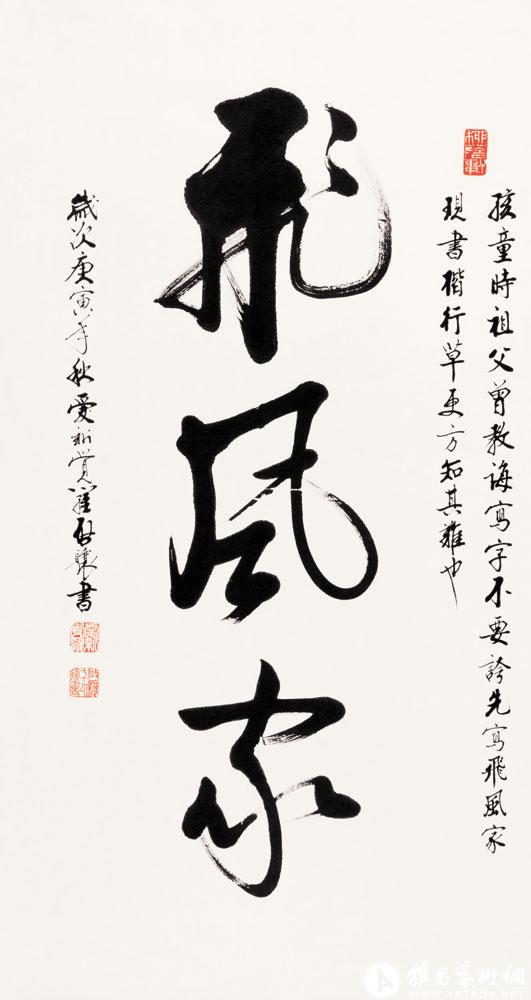 孩童時祖父曾教誨寫字不要誇先寫飛風家
現書楷行草更方知其難也
飛風家
歲次庚寅年秋愛新覺羅啟驤書
雅昌藝術網
WWW.ARTRON.NET